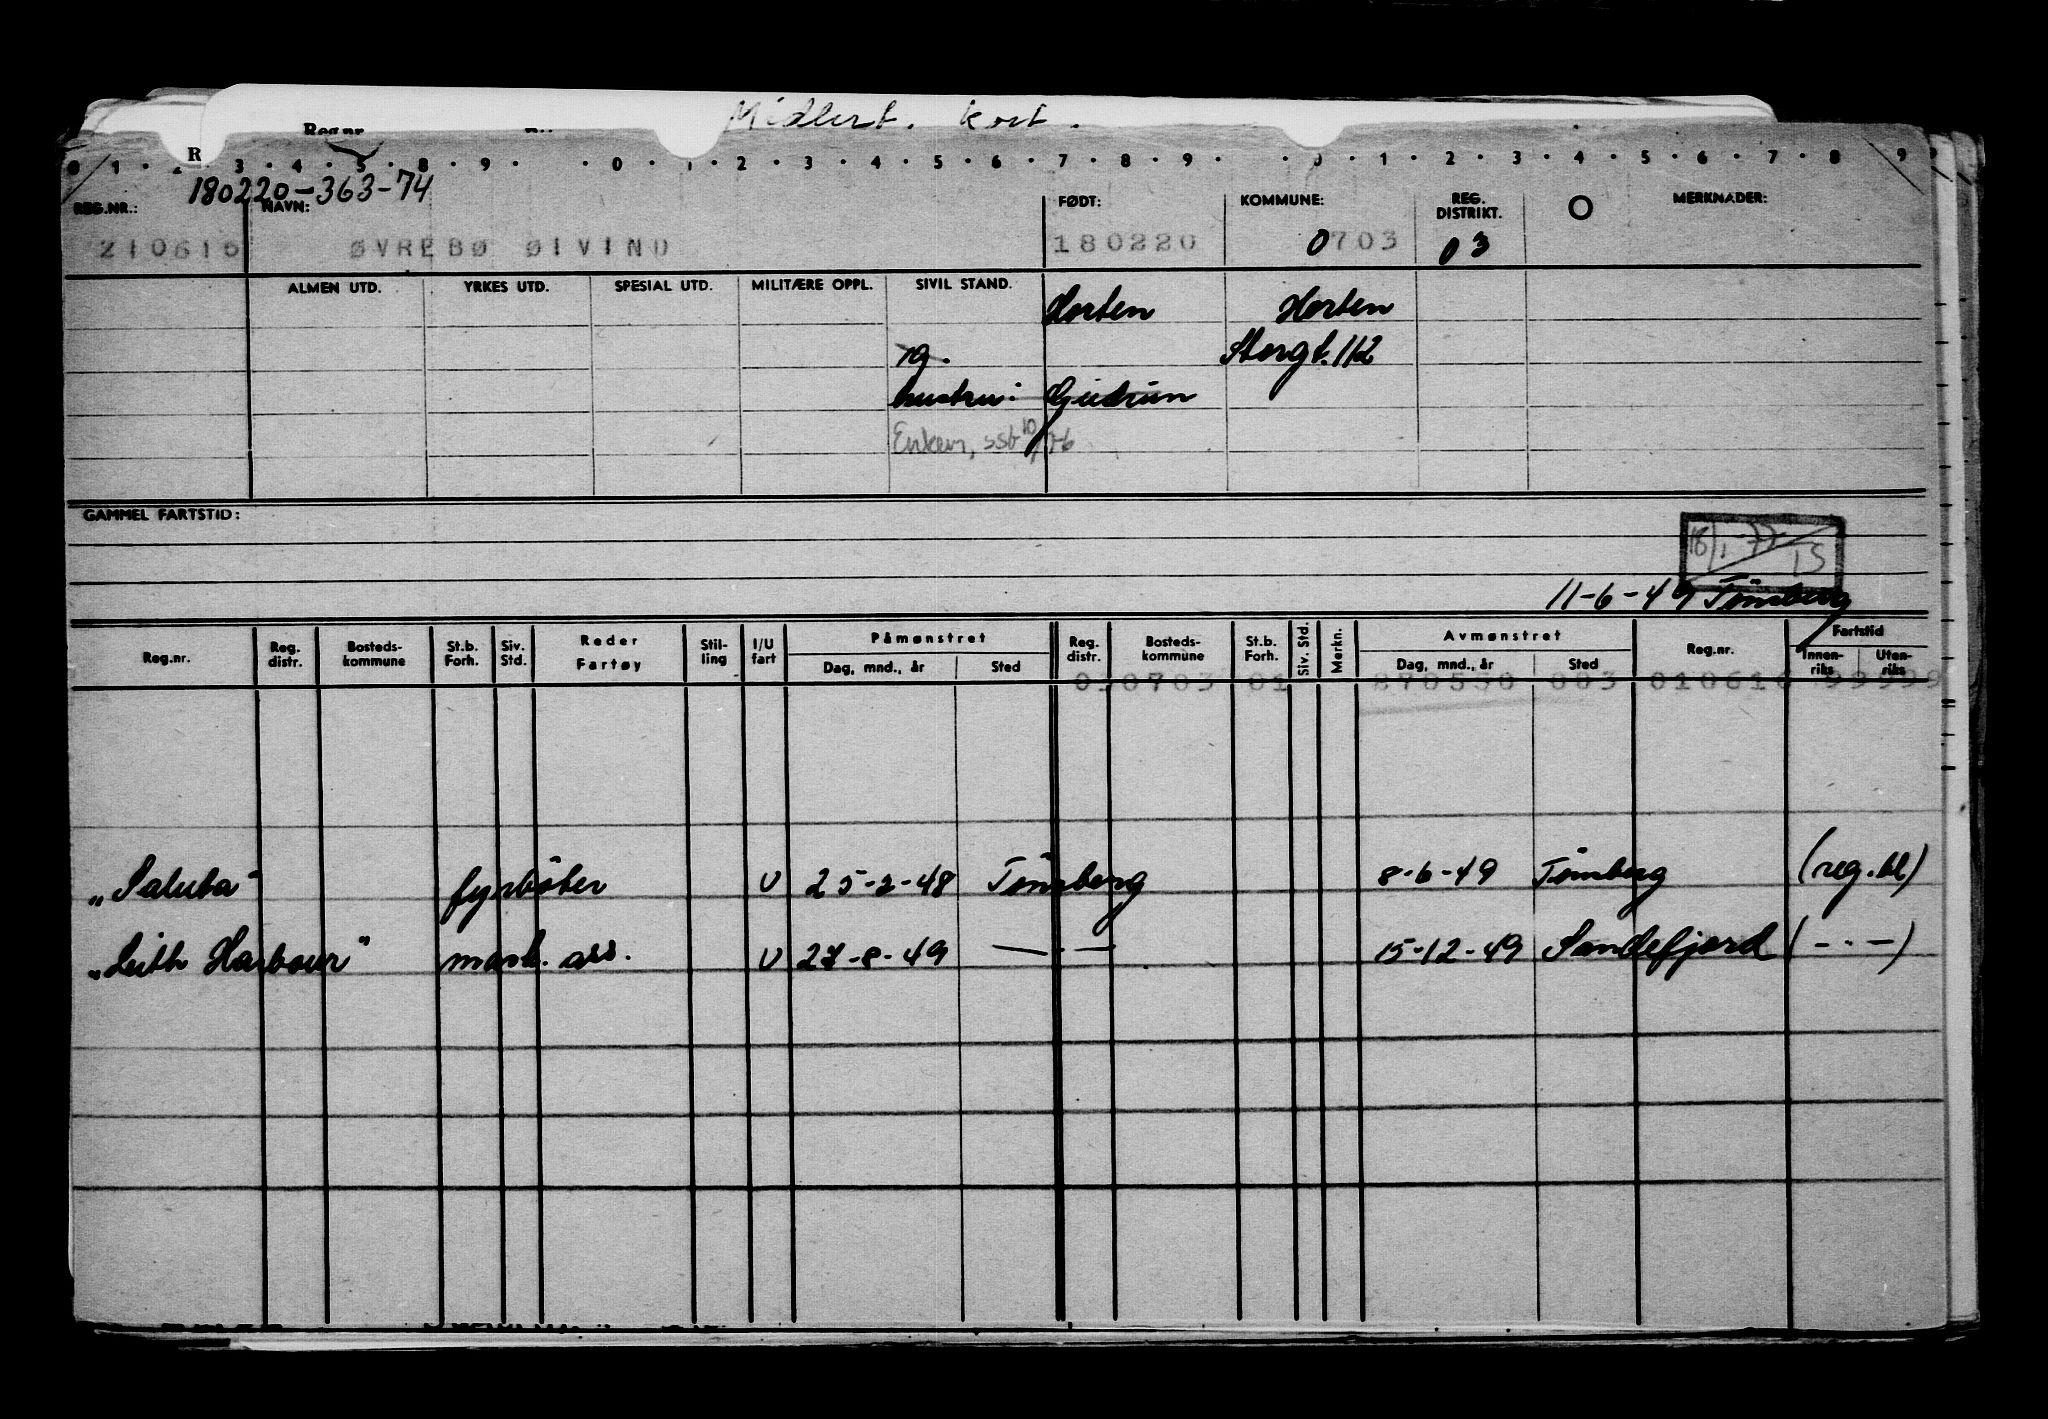 Midlert. kort.
Reg.nr.
R
0 1 2 3 4 5 8 9 0 1 2 3 4 5 6 7 8 9 0 1 2 3 4 5 6 7 8 9
180220-363-74
REG.NR.: NAVN: FØDT: KOMMUNE: REG. DISTRIKT. O MERKNADER:
210616 ØVREBØ ØIVIND 180220 0703 03
ALMEN UTD. YRKES UTD. SPESIAL UTD. MILITÆRE OPPL. SIVIL STAND.
Horten Horten
Storgt. 112
hustru: Gudrun
Enken, 10/
GAMMEL FARTSTID:
18/1-77 TS
11-6-49 Tönsberg
Reg.nr. Reg. distr. Bosteds-kommune St.b. Forh. Siv. Std. Reder Fartøy Stil-ling I/U fart Påmønstret Dag, mnd., år Sted Reg. distr. Bosteds-kommune St.b. Forh. Siv. Std. Merkn. Avmønstret Dag, mnd., år Sted Reg.nr. Fartstid Innen-riks Uten-riks
030703 01 270550 003 010616 99999
"Saluta" fyrböter U 25-2-48 Tönsberg 8-6-49 Tönsberg (reg.bl)
"Leith Harbour" mask. ass. U 27-8-49 — · — 15-12-49 Sandefjord (- · -)